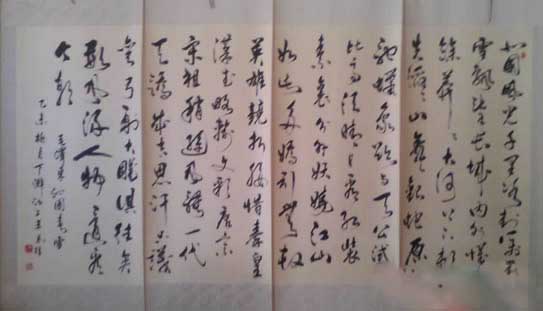 北国風光千里冰封萬里
雪飘望长城内外惟
餘莽莽大河上下顿
失滔滔山舞銀蛇原
驰蠟象欲与天公试
比高须晴日看红装
素裹分外妖娆江山
如此多嬌引無数
英雄競折腰惜秦皇
漢武略输文彩唐宗
宋祖稍逊風骚一代
天骄成吉思汗只識
弯弓射大雕俱往矣
數風流人物还看
今朝
毛澤東沁園春雪
乙未